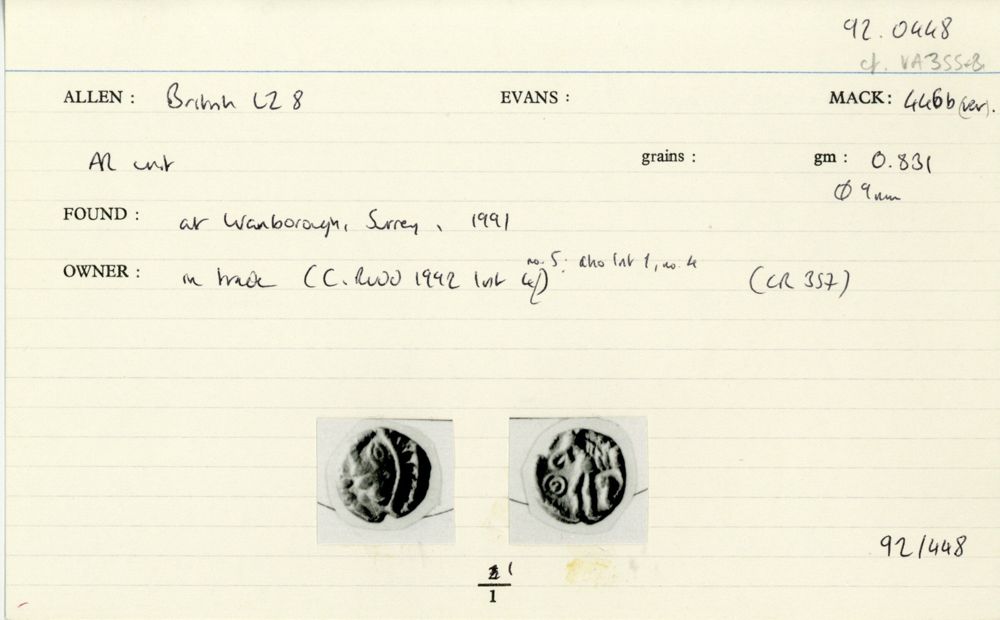 92.0448
cf. VA355-8
ALLEN : British LZ 8 EVANS : MACK: 446b (var).
AR unit grains : gm : 0.831
Ø 9mm
FOUND : at Wanborough, Surrey, 1991
no. 5; also list 1, no. 4
OWNER : in trade (C. Rudd 1992 list 4) (CR 357)
92/448
1
1